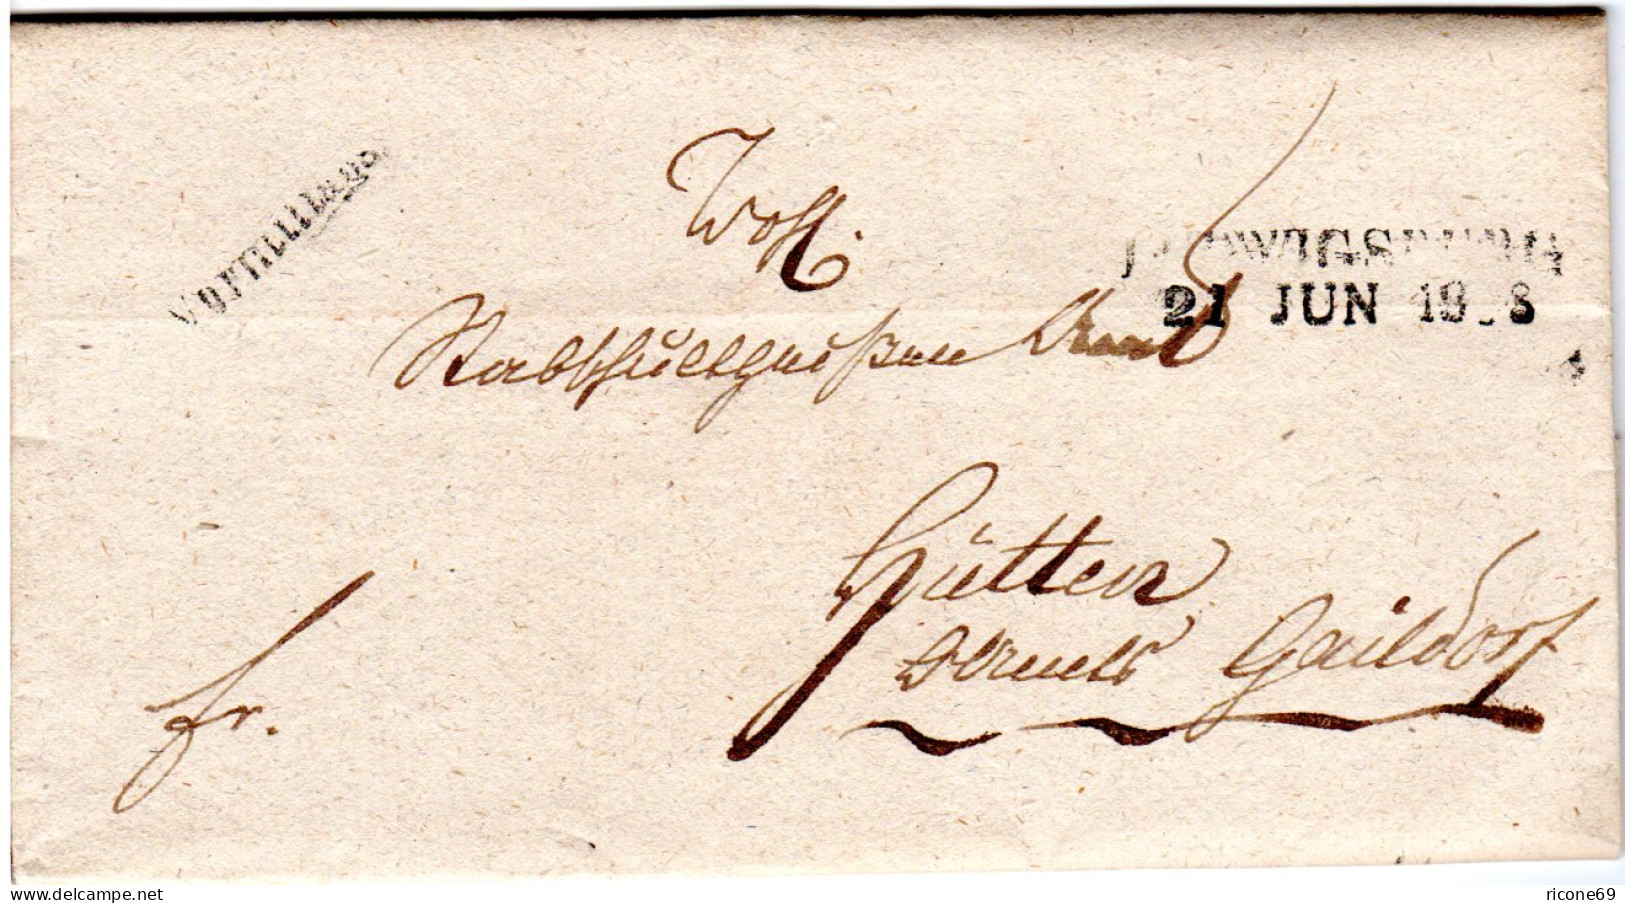 Vormittags.
Wohl.
LUDWIGSBURG
21 JUN 18 8
Hütten
Oberamts Gaildorf
fr.
www.delcampe.net
ricone69